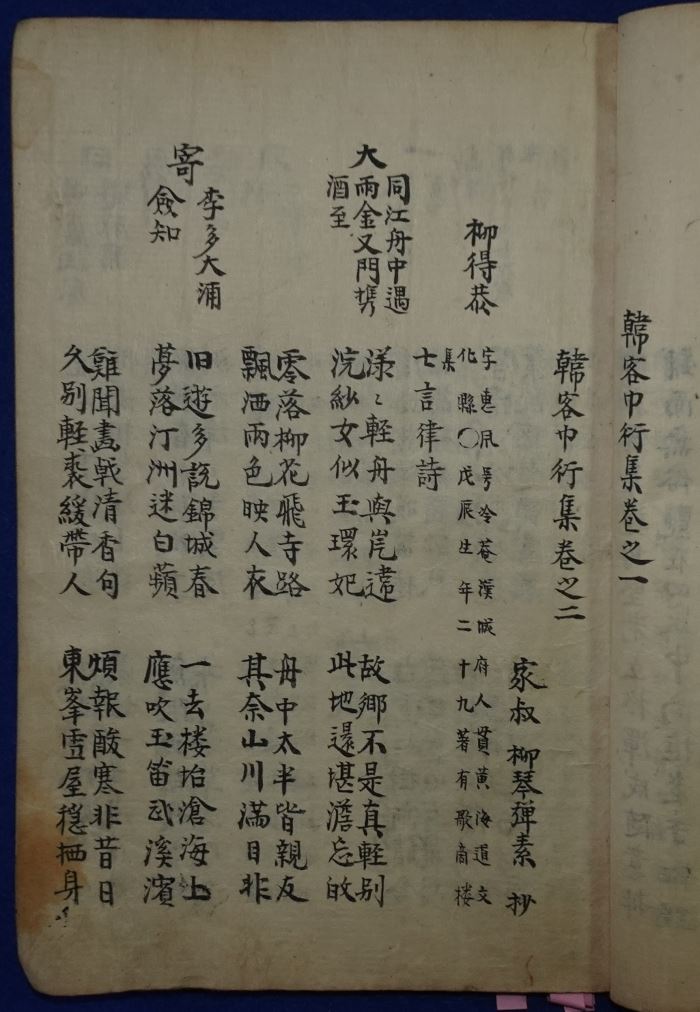 韓客巾衍集卷之一
韓客巾衍集卷之二
家叔 柳琴彈素 抄
柳得恭
字惠風号冷菴漢城府人貫黃海道文
化縣〇戊辰生年二十九著有歌商樓
集
七言律詩
大同江舟中遇
雨金又門携
酒至
漾〻輕舟與岸違 故鄉不是真輕別
浣紗女似玉環妃 此地還堪澹忘的
零落柳花飛寺路 舟中太半皆親友
飄洒雨色映人衣 其奈山川滿目非
寄李多大浦
僉知
旧遊多説錦城春 一去楼坮滄海上
夢落汀洲迷白蘋 應吹玉笛武溪濱
雞聞畵戟清香句 煩報酸寒非昔日
久別軽裘緩帶人 東峯雪屋穏栖身